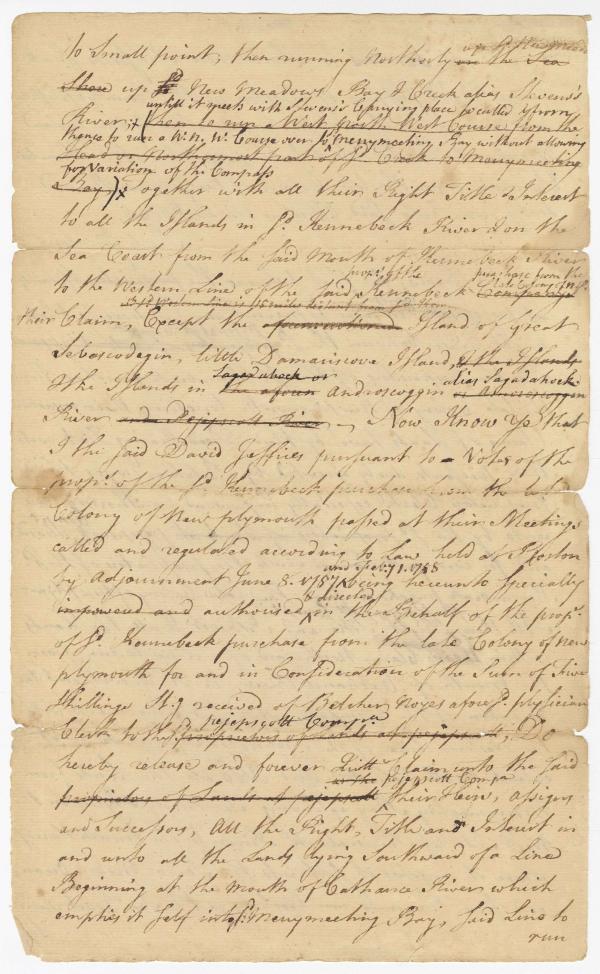 to Small point, then running Northerly on the Sea
Shore up sd New Meadows Bay & Creek alias Stevens's
untill it meets with Stevens's Carrying place so called & from
River; x then to run a West North West Course from the
thence to run a W. N. W. Course over to Merrymeeting Bay without allowing
Head or Northernmost part of sd Creek to Merrymeeting
for Variation of the Compass
Bay,) x Together with all their Right Title & Interest
to all the Islands in sd Kennebeck River & on the
Sea Coast from the said Mouth of Kennebeck River
proprs of the purchase from the
to the Western Line of the said Kennebeck Company
late Colony of N. P.
their Claim, Except the aforementioned Island of Great
Sebascodegin, little Damariscove Island, & the Islands
Sagadahock or alias Sagadahock
& the Islands in the aforesd Androscoggin or Amoroscoggin
River and Pejepscott River –, Now Know Ye that
I the said David Jeffries pursuant to a Vote of the
proprs of the sd Kennebeck purchase from the late
Colony of New plymouth passed at their Meetings
called and regulated according to Law held at Boston
and Feby 1. 1758
by Adjournment June 8. 1757 being hereunto Specially
& directed
impowerd and authorised in the Behalf of the proprs
of sd Kennebeck purchase from the late Colony of new
plymouth for and in Consideration of the Sum of Five
Shillings St. g received of Belcher Noyes aforesd physician
pejepscott Compa
Clerk to the proprietors of Lands at pejepscott, Do
hereby release and forever Quitt Claim unto the said
as the Pejepscott Compa
proprietors of Lands at pejepscott their Heirs, assigns
and Successors, All the Right, Title and Interest in
and unto all the Lands lying Southward of a Line
Beginning at the Mouth of Cathance River which
empties it Self into sd Merrymeeting Bay, Said Line to
run